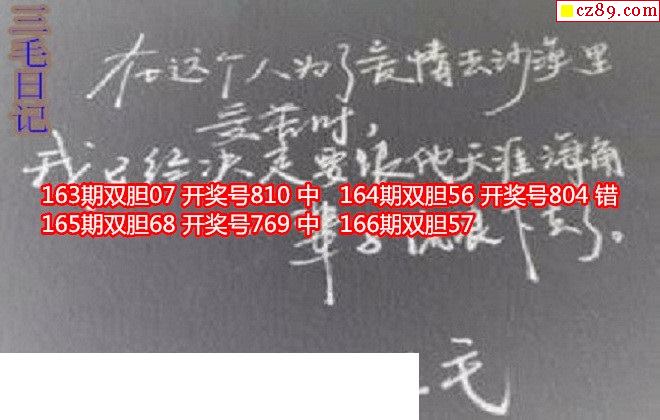 cz89.com
三毛日记
在这个人为了爱情去沙漠里
受苦时，
我已经决定要跟他天涯海角
163期双胆07 开奖号810 中 164期双胆56 开奖号804 错
165期双胆68 开奖号769 中 166期双胆57
辈子流浪下去了。
毛